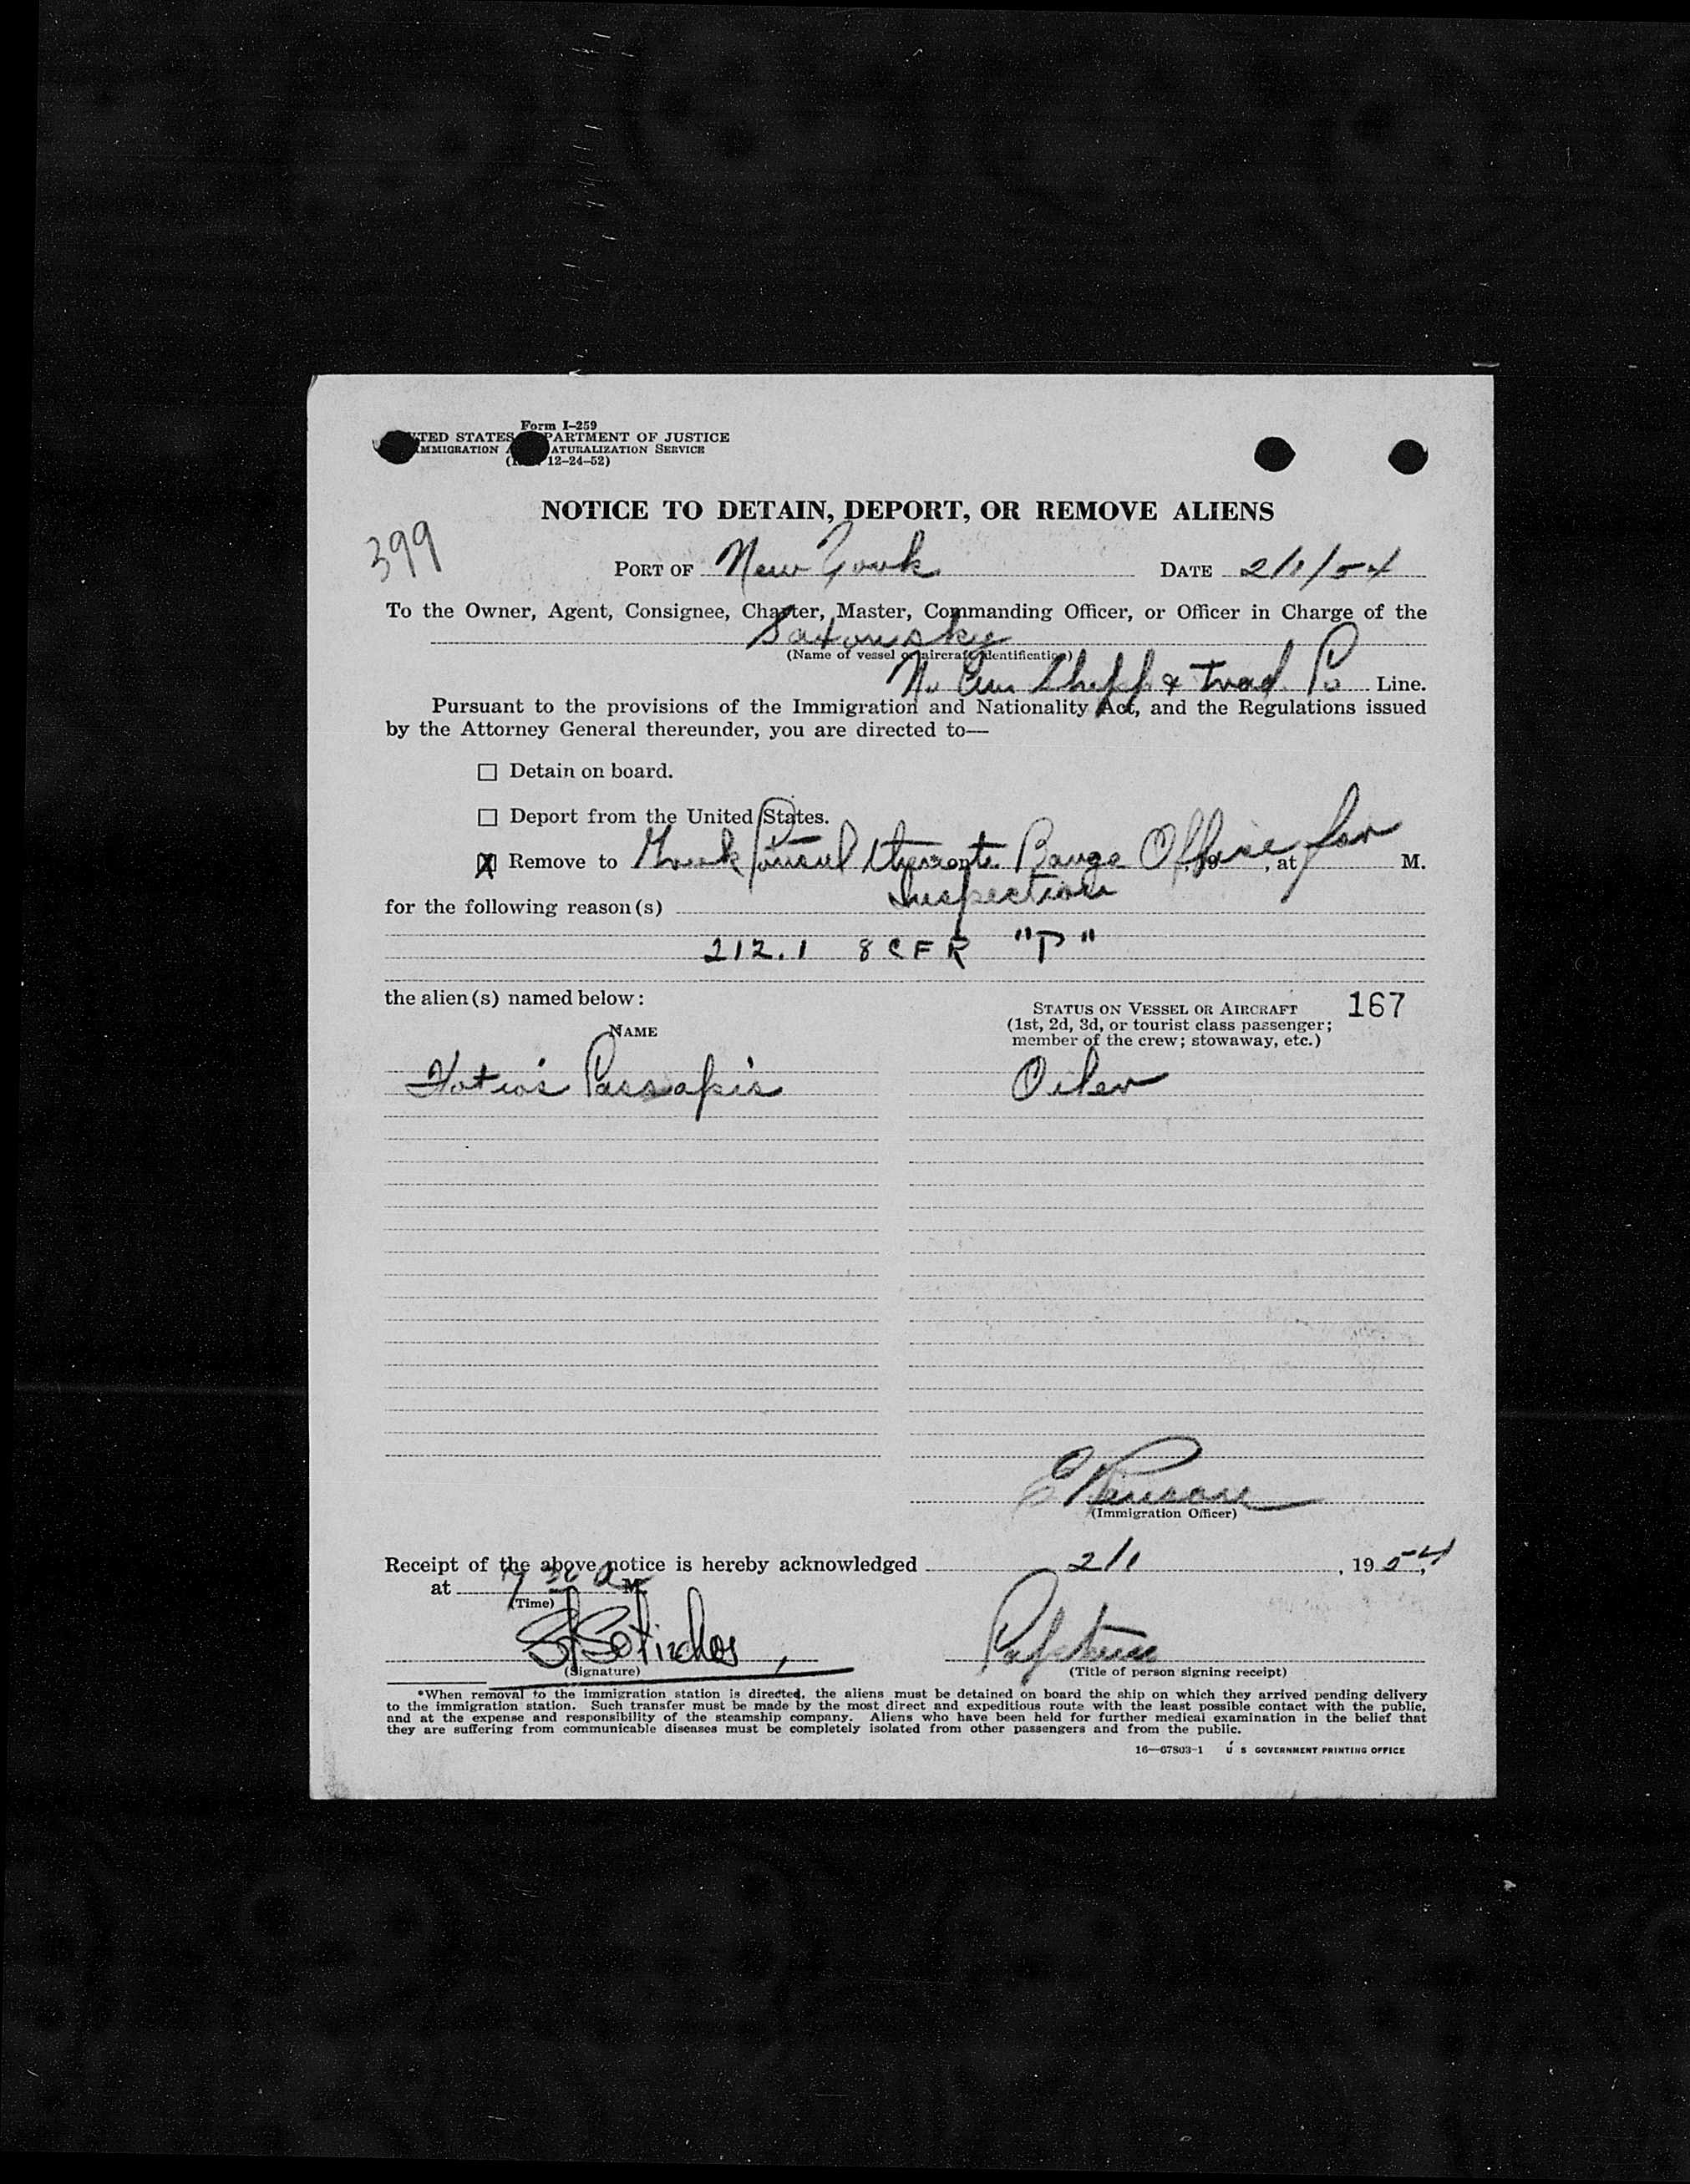 Form I-259
UNITED STATES DEPARTMENT OF JUSTICE
IMMIGRATION AND NATURALIZATION SERVICE
12-24-52)
NOTICE TO DETAIN, DEPORT, OR REMOVE ALIENS
399
PORT OF New York DATE 2/1/54
To the Owner, Agent, Consignee, Charter, Master, Commanding Officer, or Officer in Charge of the
(Name of vessel or aircraft identification)
No Am Shipp & Trad. Co Line.
Pursuant to the provisions of the Immigration and Nationality Act, and the Regulations issued
by the Attorney General thereunder, you are directed to—
☐ Detain on board.
☐ Deport from the United States.
☒ Remove to Greek Consul thence to Barge Office for , 19 , at M.
Inspection
for the following reason(s)
212.1 8 CFR "P"
the alien(s) named below:
STATUS ON VESSEL OR AIRCRAFT 167
(1st, 2d, 3d, or tourist class passenger;
member of the crew; stowaway, etc.)
NAME
Fotios Passapis Oiler
(Immigration Officer)
Receipt of the above notice is hereby acknowledged 2/1 , 1954,
at 7 30 a M.
(Time)
(Signature)
(Title of person signing receipt)
*When removal to the immigration station is directed, the aliens must be detained on board the ship on which they arrived pending delivery
to the immigration station. Such transfer must be made by the most direct and expeditious route with the least possible contact with the public,
and at the expense and responsibility of the steamship company. Aliens who have been held for further medical examination in the belief that
they are suffering from communicable diseases must be completely isolated from other passengers and from the public.
16—67803-1 U S GOVERNMENT PRINTING OFFICE